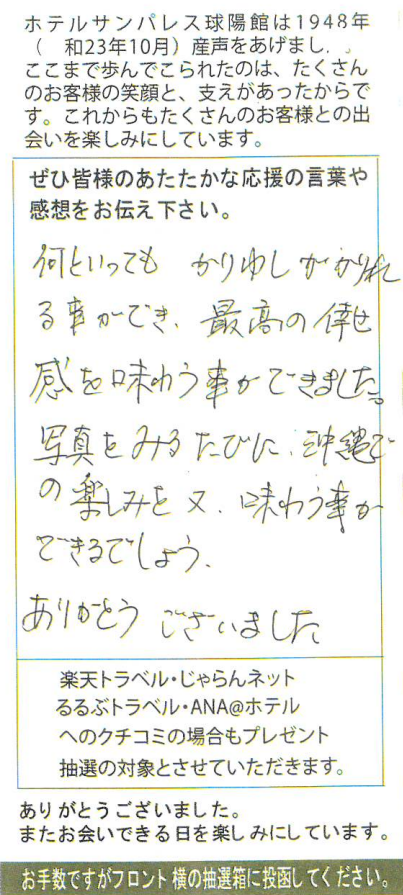 ホテルサンパレス球陽館は1948年
（　和23年10月）産声をあげまし．
ここまで歩んでこられたのは、たくさん
のお客様の笑顔と、支えがあったからで
す。これからもたくさんのお客様との出
会いを楽しみにしています。
ぜひ皆様のあたたかな応援の言葉や
感想をお伝え下さい。
何といっても かりゆしがかりれ
る事ができ、最高の倖せ
感を味わう事ができました。
写真をみるたびに、沖縄で
の楽しみを又、味わう事が
できるでしょう。
ありがとうございました
楽天トラベル・じゃらんネット
るるぶトラベル・ANA@ホテル
へのクチコミの場合もプレゼント
抽選の対象とさせていただきます。
ありがとうございました。
またお会いできる日を楽しみにしています。
お手数ですがフロント横の抽選箱に投函してください。